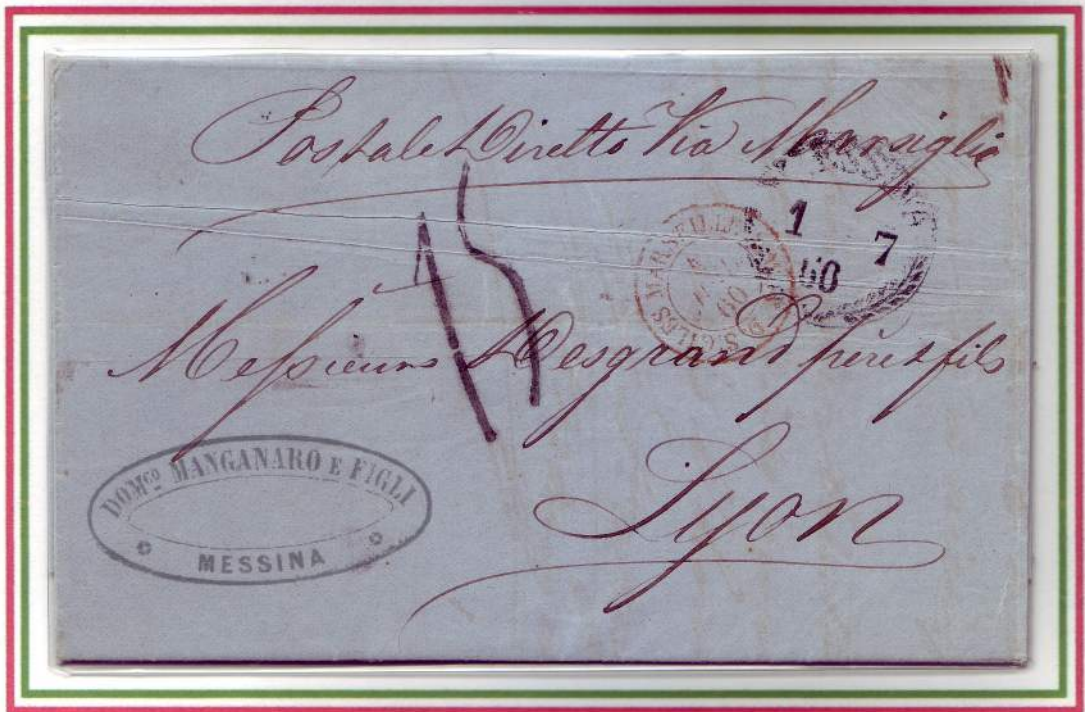 Postale Diretto Via Marsiglia
1 7
60
15
MARSEILLE
60
Messieurs Desgrand père & fils
Lyon
DOMCO MANGANARO E FIGLI
MESSINA